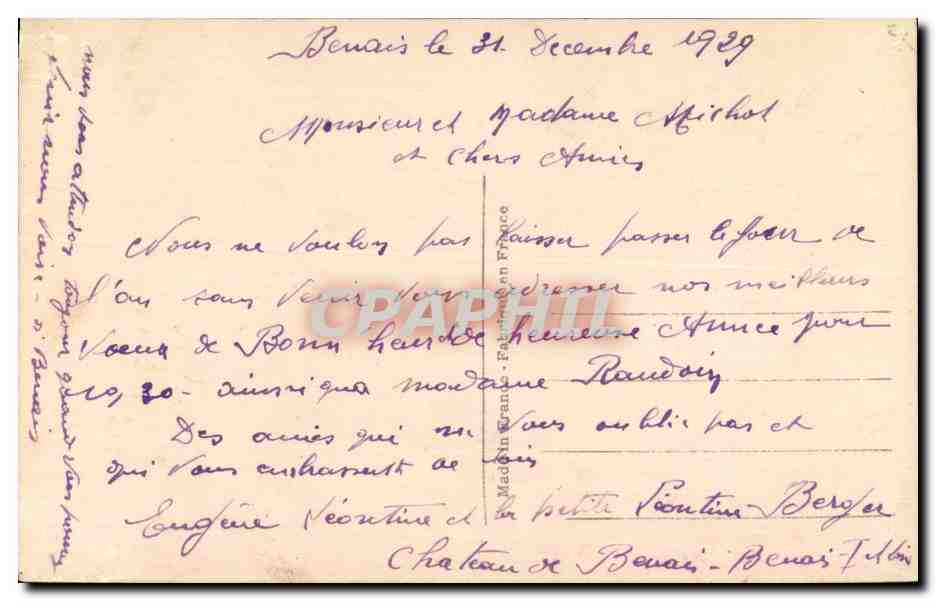 Benais le 31 Decembre 1929
Monsieur et Madame Michot
et Chers Amies
Nous ne voulon pas laisser passer le jour de
l'an sans venir vous adresser nos meilleurs
vœux de Bonn heureuse Annee pour
1930 - ainsi qua madame Raudoin
Des amies qui ne vous oublie pas et
qui vous embrassent de loin
Eugéne Léontine et la petite Léontine - Berger
Chateau de Benais - Benais I et Loir
nous vous attendons toujour quand vous
venir nous voire - a Benais
Made in France - Fabriqué en France
CPAPHIL